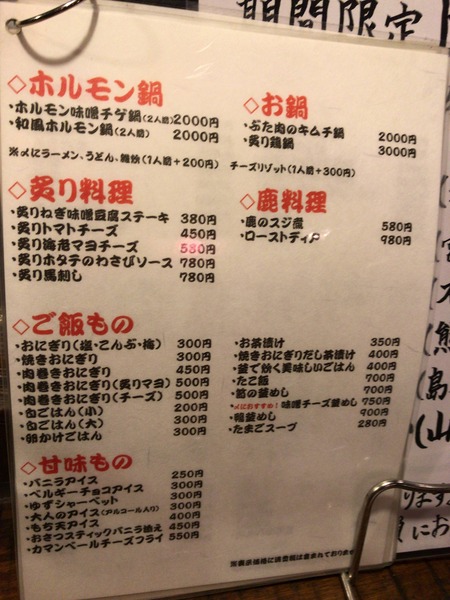 期間限定
◇ホルモン鍋
・ホルモン味噌チゲ鍋(2人前)2000円
・和風ホルモン鍋(2人前) 2000円
※〆にラーメン、うどん、雑炊(1人前+200円)
◇お鍋
・ぶた肉のキムチ鍋 2000円
・炙り鶏鍋 3000円
チーズリゾット(1人前+300円)
◇炙り料理
・炙りねぎ味噌豆腐ステーキ 380円
・炙りトマトチーズ 450円
・炙り海老マヨチーズ 580円
・炙りホタテのわさびソース 780円
・炙り馬刺し 780円
◇鹿料理
・鹿のスジ煮 580円
・ローストディア 980円
◇ご飯もの
・おにぎり(塩・こんぶ・梅) 300円
・焼きおにぎり 300円
・肉巻きおにぎり 450円
・肉巻きおにぎり(炙りマヨ) 500円
・肉巻きおにぎり(チーズ) 500円
・白ごはん(小) 200円
・白ごはん(大) 300円
・卵かけごはん 300円
・お茶漬け 350円
・焼きおにぎりだし茶漬け 400円
・釜で炊く美味しいごはん 400円
・たこ飯 700円
・筍の釜めし 700円
・〆におすすめ!味噌チーズ釜めし 750円
・鴨釜めし 900円
・たまごスープ 280円
◇甘味もの
・バニラアイス 250円
・ベルギーチョコアイス 300円
・ゆずシャーベット 300円
・大人のアイス(アルコール入り) 400円
・もち天アイス 450円
・おさつスティックバニラ添え 450円
・カマンベールチーズフライ 550円